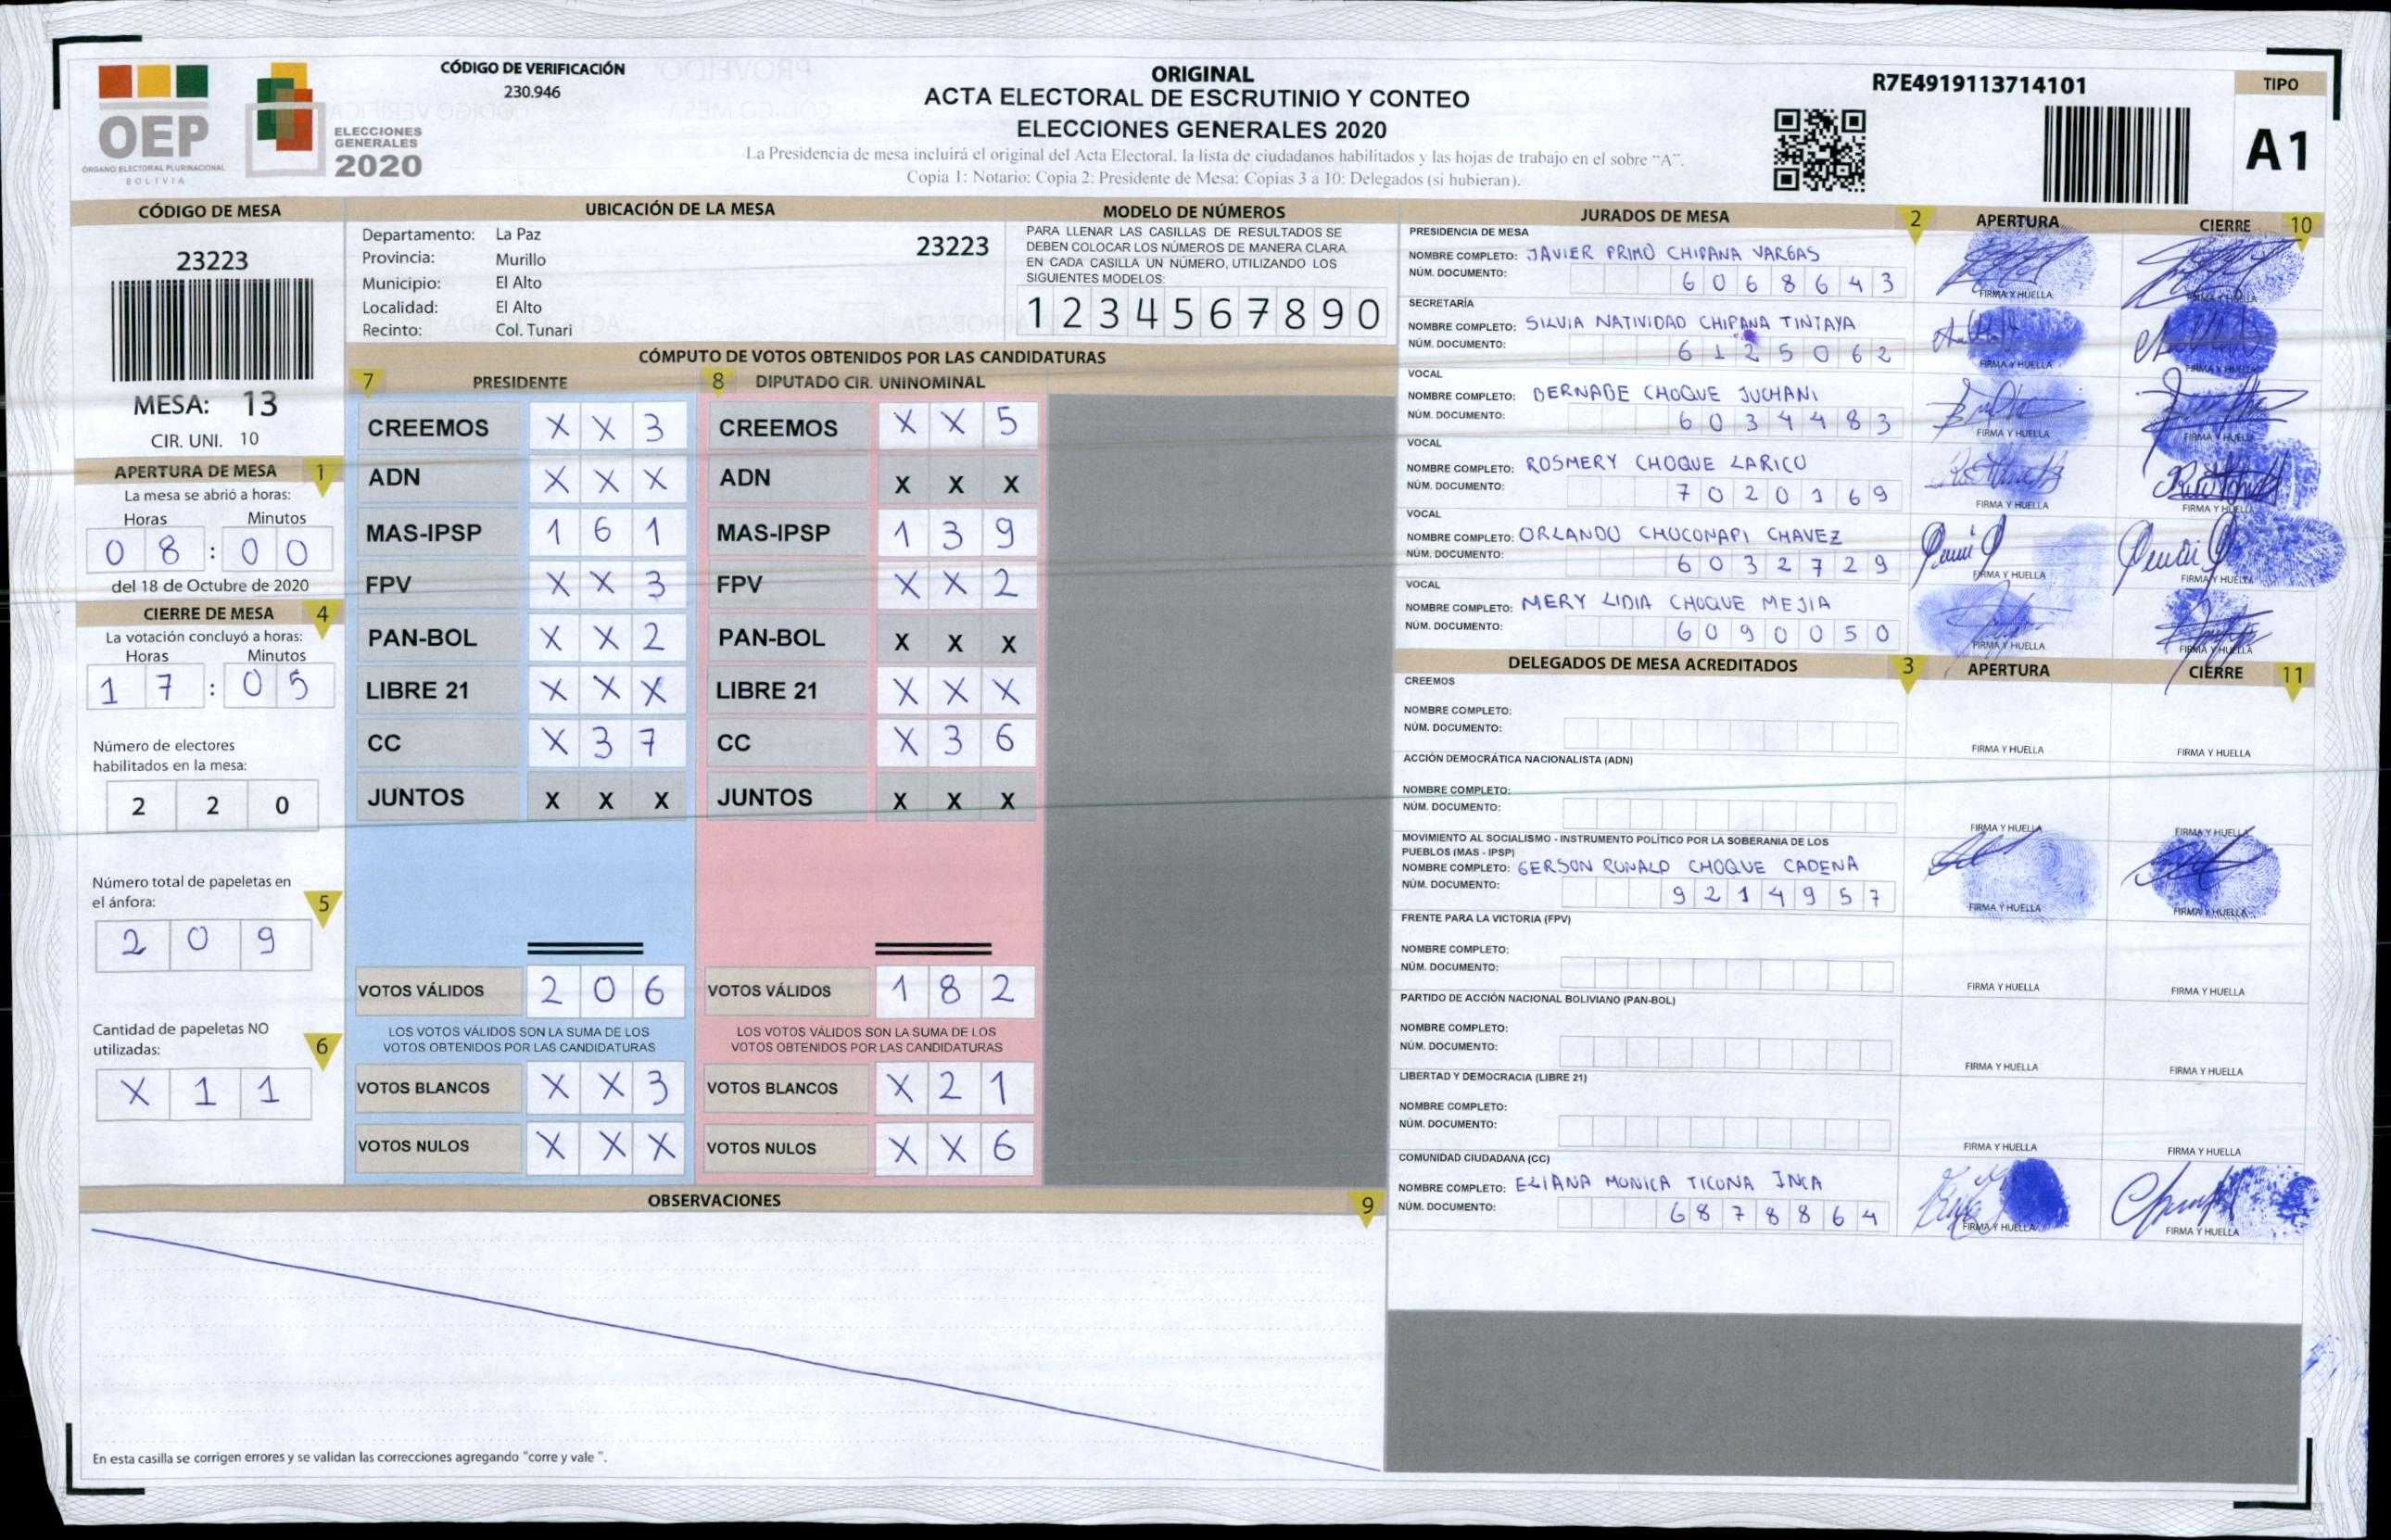 OEP
ÓRGANO ELECTORAL PLURINACIONAL
BOLIVIA
ELECCIONES
GENERALES
2020
CÓDIGO DE VERIFICACIÓN
230.946
ORIGINAL
ACTA ELECTORAL DE ESCRUTINIO Y CONTEO
ELECCIONES GENERALES 2020
La Presidencia de mesa incluirá el original del Acta Electoral, la lista de ciudadanos habilitados y las hojas de trabajo en el sobre "A".
Copia 1: Notario; Copia 2: Presidente de Mesa; Copias 3 a 10: Delegados (si hubieran).
R7E4919113714101
TIPO
A1
CÓDIGO DE MESA
23223
MESA: 13
CIR. UNI. 10
APERTURA DE MESA 1
La mesa se abrió a horas:
Horas Minutos
0 8 : 0 0
del 18 de Octubre de 2020
CIERRE DE MESA 4
La votación concluyó a horas:
Horas Minutos
1 7 : 0 5
Número de electores
habilitados en la mesa:
2 2 0
Número total de papeletas en
el ánfora: 5
2 0 9
Cantidad de papeletas NO
utilizadas: 6
X 1 1
UBICACIÓN DE LA MESA
Departamento: La Paz 23223
Provincia: Murillo
Municipio: El Alto
Localidad: El Alto
Recinto: Col. Tunari
MODELO DE NÚMEROS
PARA LLENAR LAS CASILLAS DE RESULTADOS SE
DEBEN COLOCAR LOS NÚMEROS DE MANERA CLARA
EN CADA CASILLA UN NÚMERO, UTILIZANDO LOS
SIGUIENTES MODELOS:
1 2 3 4 5 6 7 8 9 0
CÓMPUTO DE VOTOS OBTENIDOS POR LAS CANDIDATURAS
7 PRESIDENTE 8 DIPUTADO CIR. UNINOMINAL
CREEMOS X X 3 CREEMOS X X 5
ADN X X X ADN X X X
MAS-IPSP 1 6 1 MAS-IPSP 1 3 9
FPV X X 3 FPV X X 2
PAN-BOL X X 2 PAN-BOL X X X
LIBRE 21 X X X LIBRE 21 X X X
CC X 3 7 CC X 3 6
JUNTOS X X X JUNTOS X X X
VOTOS VÁLIDOS 2 0 6 VOTOS VÁLIDOS 1 8 2
LOS VOTOS VÁLIDOS SON LA SUMA DE LOS LOS VOTOS VÁLIDOS SON LA SUMA DE LOS
VOTOS OBTENIDOS POR LAS CANDIDATURAS VOTOS OBTENIDOS POR LAS CANDIDATURAS
VOTOS BLANCOS X X 3 VOTOS BLANCOS X 2 1
VOTOS NULOS X X X VOTOS NULOS X X 6
OBSERVACIONES 9
En esta casilla se corrigen errores y se validan las correcciones agregando "corre y vale ".
JURADOS DE MESA 2 APERTURA CIERRE 10
PRESIDENCIA DE MESA
NOMBRE COMPLETO: JAVIER PRIMO CHIPANA VARGAS
NÚM. DOCUMENTO: 6 0 6 8 6 4 3
FIRMA Y HUELLA FIRMA Y HUELLA
SECRETARÍA
NOMBRE COMPLETO: SILVIA NATIVIDAD CHIPANA TINTAYA
NÚM. DOCUMENTO: 6 1 2 5 0 6 2
FIRMA Y HUELLA FIRMA Y HUELLA
VOCAL
NOMBRE COMPLETO: BERNABE CHOQUE JUCHANI
NÚM. DOCUMENTO: 6 0 3 4 4 8 3
FIRMA Y HUELLA FIRMA Y HUELLA
VOCAL
NOMBRE COMPLETO: ROSMERY CHOQUE LARICO
NÚM. DOCUMENTO: 7 0 2 0 1 6 9
FIRMA Y HUELLA FIRMA Y HUELLA
VOCAL
NOMBRE COMPLETO: ORLANDO CHOCONAPI CHAVEZ
NÚM. DOCUMENTO: 6 0 3 2 7 2 9
FIRMA Y HUELLA FIRMA Y HUELLA
VOCAL
NOMBRE COMPLETO: MERY LIDIA CHOQUE MEJIA
NÚM. DOCUMENTO: 6 0 9 0 0 5 0
FIRMA Y HUELLA FIRMA Y HUELLA
DELEGADOS DE MESA ACREDITADOS 3 APERTURA CIERRE 11
CREEMOS
NOMBRE COMPLETO:
NÚM. DOCUMENTO:
FIRMA Y HUELLA FIRMA Y HUELLA
ACCIÓN DEMOCRÁTICA NACIONALISTA (ADN)
NOMBRE COMPLETO:
NÚM. DOCUMENTO:
FIRMA Y HUELLA FIRMA Y HUELLA
MOVIMIENTO AL SOCIALISMO - INSTRUMENTO POLÍTICO POR LA SOBERANIA DE LOS
PUEBLOS (MAS - IPSP)
NOMBRE COMPLETO: GERSON RONALD CHOQUE CADENA
NÚM. DOCUMENTO: 9 2 1 4 9 5 7
FIRMA Y HUELLA FIRMA Y HUELLA
FRENTE PARA LA VICTORIA (FPV)
NOMBRE COMPLETO:
NÚM. DOCUMENTO:
FIRMA Y HUELLA FIRMA Y HUELLA
PARTIDO DE ACCIÓN NACIONAL BOLIVIANO (PAN-BOL)
NOMBRE COMPLETO:
NÚM. DOCUMENTO:
FIRMA Y HUELLA FIRMA Y HUELLA
LIBERTAD Y DEMOCRACIA (LIBRE 21)
NOMBRE COMPLETO:
NÚM. DOCUMENTO:
FIRMA Y HUELLA FIRMA Y HUELLA
COMUNIDAD CIUDADANA (CC)
NOMBRE COMPLETO: ELIANA MONICA TICONA INCA
NÚM. DOCUMENTO: 6 8 7 8 8 6 4
FIRMA Y HUELLA FIRMA Y HUELLA